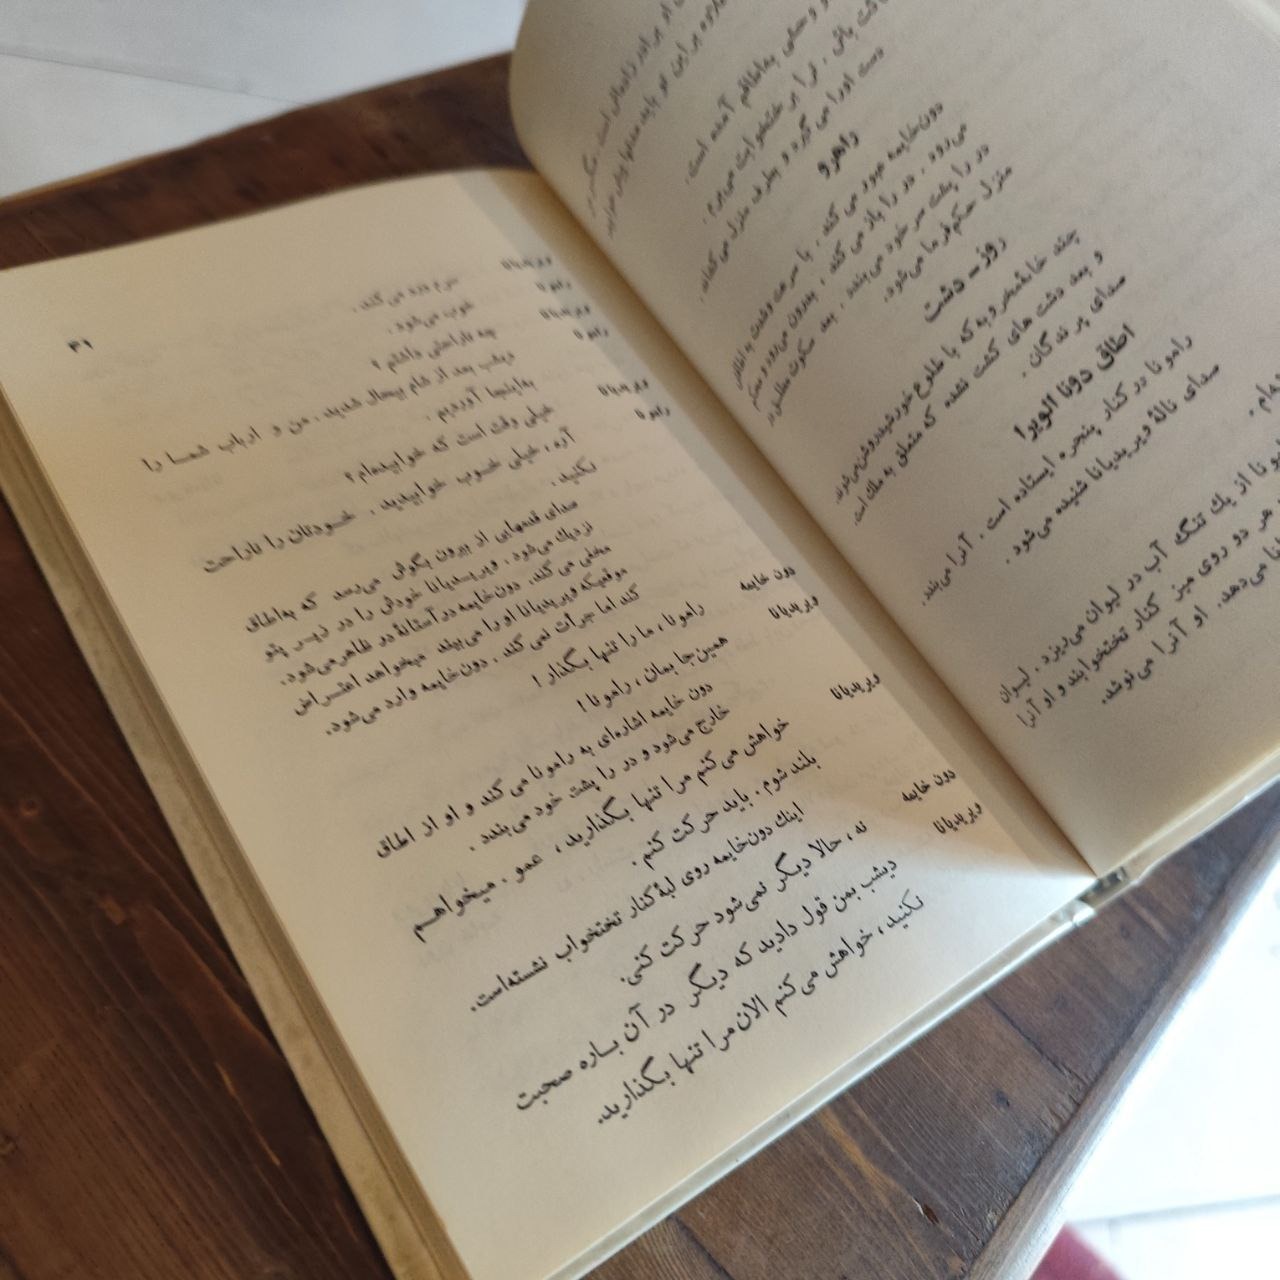 دست او را می گیرد و بطرف منزل می کشاند.
راهرو
دون‌خایمه عبور می کند. با سرعت وشدت به اطاق
می‌رود. در را باز می کند، بدرون می‌رود و محکم
در را پشت سر خود می‌بندد. بعد سکوت مطلق در
منزل حکم‌فرما می‌شود.
روز - دشت
چند خانهٔ مخروبه که با طلوع خورشید روشن می‌شوند.
و بعد دشت های کشت نشده که متعلق به ملك است.
صدای پرندگان.
اطاق دونا الویرا
رامونا در کنار پنجره ایستاده است. آنرا می‌بندد.
صدای نالهٔ ویریدیانا شنیده می‌شود.
نا از یك تنگ آب در لیوان می‌ریزد. لیوان
هر دو روی میز کنار تختخوابند و او آنرا
نا می‌دهد. او آنرا می‌نوشد.
۴۱
ویریدیانا سرم درد می کند.
رامونا خوب می‌شود.
ویریدیانا چه ناراحتی داشتم؟
رامونا دیشب بعد از شام بیحال شدید. من و ارباب شما را
به‌اینجا آوردیم.
ویریدیانا خیلی وقت است که خوابیده‌ام؟
رامونا آره، خیلی خوب خوابیدید. خودتان را ناراحت
نکنید.
صدای قدمهایی از بیرون بگوش می‌رسد که به‌اطاق
نزدیك می‌شود. ویریدیانا خودش را در زیر پتو
مخفی می کند. دون‌خایمه در آستانهٔ در ظاهر می‌شود.
موقعیکه ویریدیانا او را می‌بیند میخواهد اعتراض
کند اما جرأت نمی کند. دون‌خایمه وارد می‌شود.
دون خایمه رامونا، ما را تنها بگذار!
ویریدیانا همین‌جا بمان، رامونا!
دون خایمه اشاره‌ای به رامونا می کند و او از اطاق
خارج می‌شود و در را پشت خود می‌بندد.
ویریدیانا خواهش می کنم مرا تنها بگذارید، عمو. میخواهم
بلند شوم. باید حرکت کنم.
اینك دون‌خایمه روی لبهٔ کنار تختخواب نشسته‌است.
دون خایمه نه، حالا دیگر نمی‌شود حرکت کنی.
ویریدیانا دیشب بمن قول دادید که دیگر در آن باره صحبت
نکنید، خواهش می کنم الان مرا تنها بگذارید.